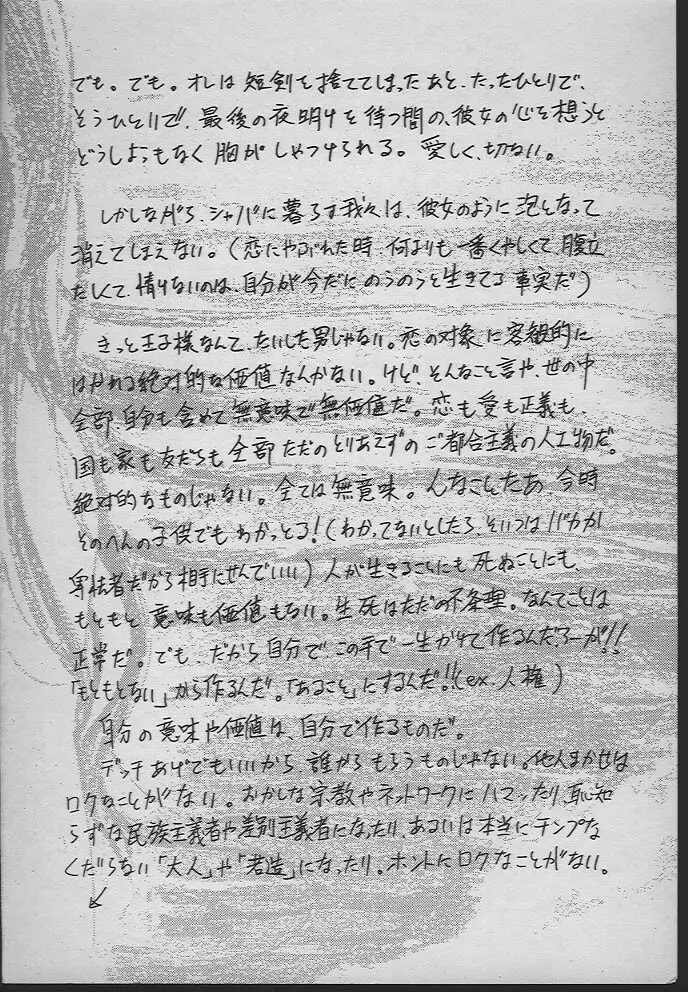 でも。でも。オレは短剣を捨ててしまったあと、たったひとりで、
そうひとりで、最後の夜明けを待つ間の、彼女の心を想うと
どうしようもなく胸がしめつけられる。愛しく、切ない。
しかしながら、シャバに暮らす我々は、彼女のように泡となって
消えてしまえない。(恋にやぶれた時、何よりも一番くやしくて、腹立
たしくて、情けないのは、自分が今だにのうのうと生きてる事実だ)
きっと王子様なんて、たいした男じゃない。恋の対象に客観的に
はかれる絶対的な価値なんかない。けど、そんなこと言や、世の中
全部、自分も含めて無意味で無価値だ。恋も愛も正義も、
国も家も友だちも全部ただのとりあえずのご都合主義の人工物だ。
絶対的なものじゃない。全ては無意味。んなこたあ、今時
そのへんの子供でもわかっとる!(わかってないとしたら、そいつはバカか
卑怯者だから相手にせんでいい)人が生きることにも死ぬことにも、
もともと意味も価値もない。生死はただの不条理。なんてことは
正常だ。でも、だから自分でこの手で一生かけて作るんだろーが!!
「もともとない」から作るんだ。「あること」にするんだ!!(ex.人権)
自分の意味や価値は、自分で作るものだ。
デッチあげでもいいから、誰からもらうものじゃない。他人まかせは
ロクなことがない。おかしな宗教やネットワークにハマッたり、恥知
らずな民族主義者や差別主義者になったり、あるいは本当にチンプな
くだらない「大人」や「若造」になったり。ホントにロクなことがない。
↙